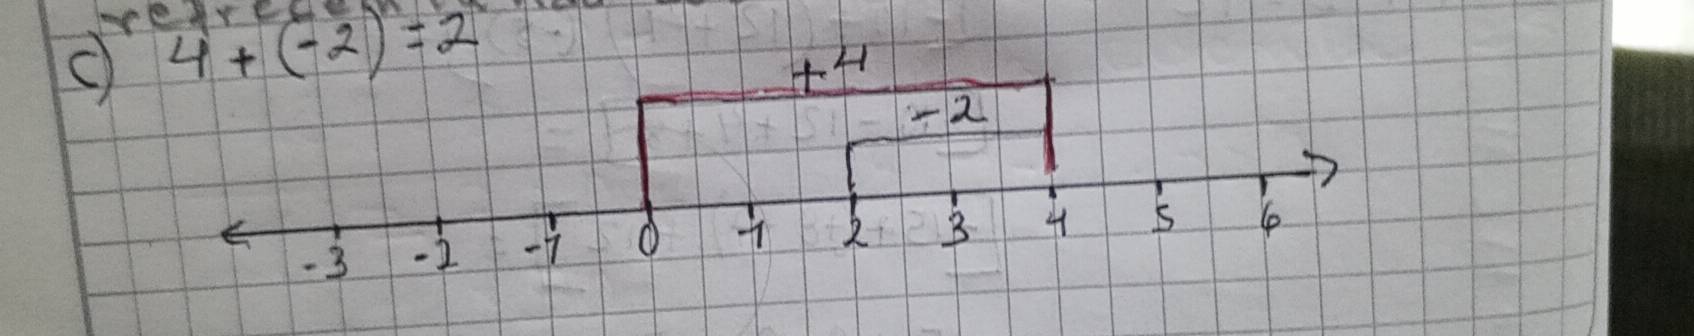 c) 4 + (-2) = 2
+4
-2
-3 -2 -1 0 1 2 3 4 5 6